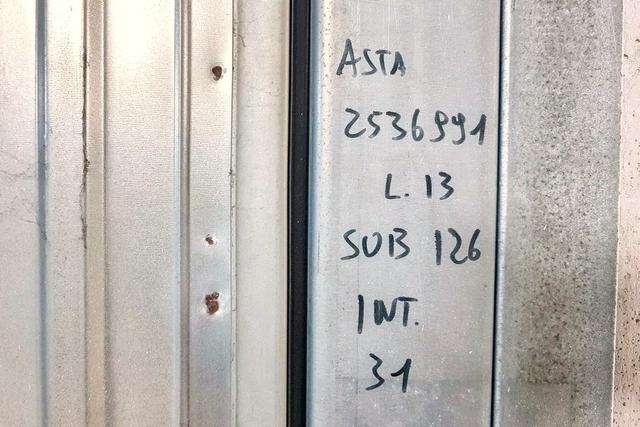 ASTA
2536991
L. 13
SUB 126
INT.
31